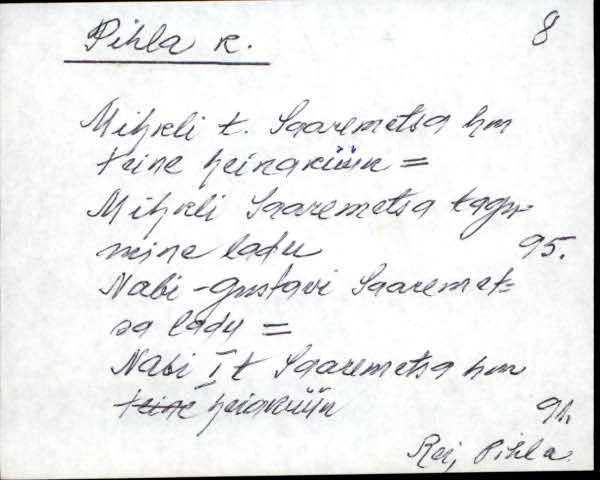 Pihla k. 8
Mihkli t. Saaremetsa hm
teine heinaküün =
Mihkli Saaremetsa tagu-
mine ladu 95.
Nabi-Gustavi Saaremet-
sa ladu =
Nabi I t Saaremetsa hm
teine heinaküün
Rei, Pihla